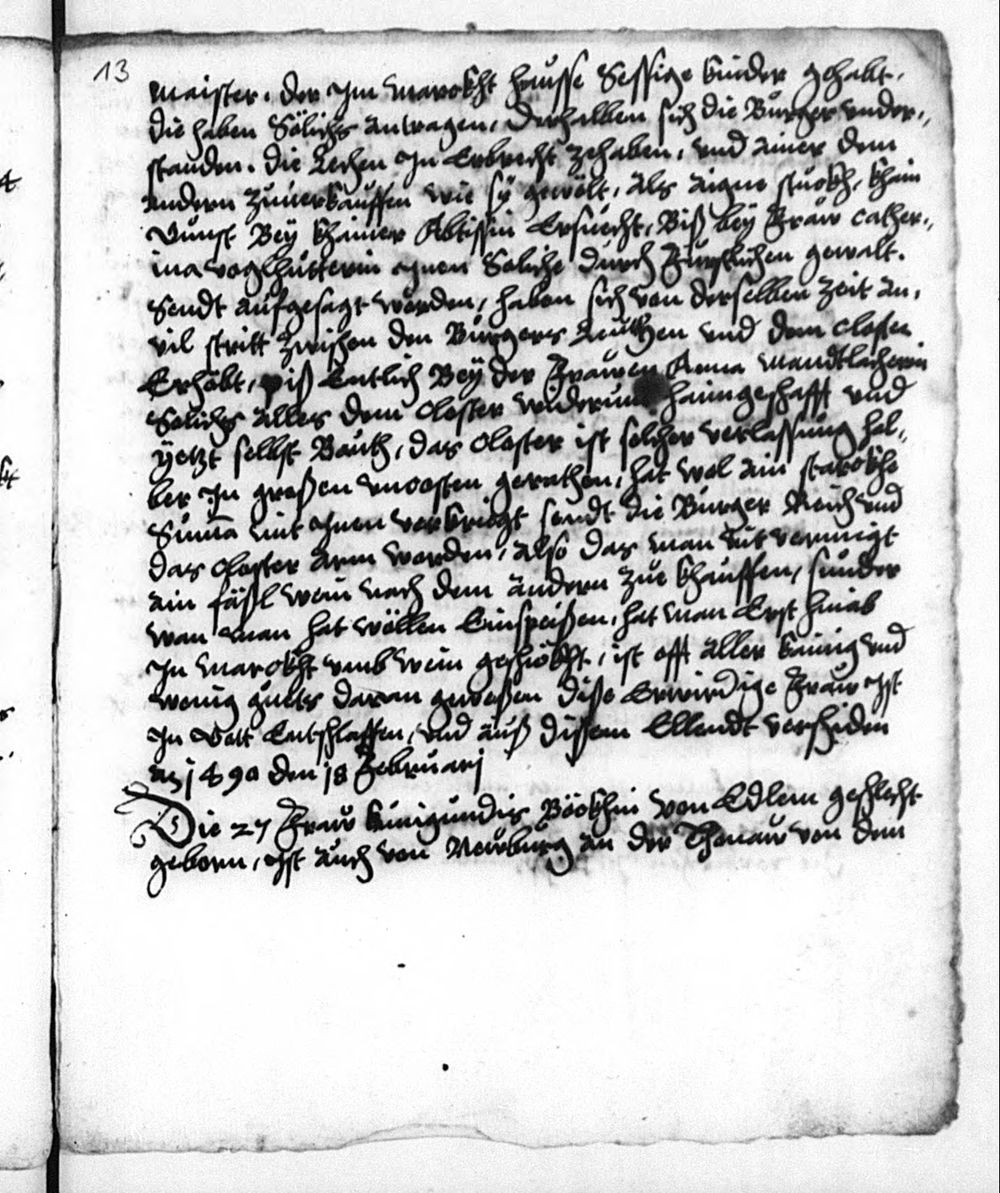 13
Maister. der Im Marckht hausse Sessige kinder gehabt.
die haben Sölichs antragen. Derhalben sich die Burger vnder„
standen. die Lechen In Erbrecht zehaben, vnd ainer dem
andern zuuerkauffen wie sy gewölt, als aigne stuckh, khain
Gunst Bey khainer Abtissin Ersuecht, Biß bey Fraw Cather„
ina Voglhutterin Inen Soliche durch Furstlichen gewalt.
Sendt aufgesagt worden, haben sich von derselben Zeit an,
vil stritt zwischen den Burgers Leuthen vnd dem Closter
Erhebt, Biß Entlich Bey der Frawen Anna Mandtlacherin
Solichs alles dem Closter widerumb haimgeschafft vnd
yetzt selbst Bauth, das Closter ist solcher verlassung hal„
ber In grossen vncosten gerathen, hat wol ain starckhe
Summa mit Inen verkriegt sendt die Burger Reich vnd
das Closter arm worden, also das man nit vermügt
ain fässl wein nach dem andern zue khauffen, sunder
wan man hat wöllen Einspeisen, hat man Erst hinab
In Marckht vmb wein geschickht, ist offt aller kainig vnd
wenig guets daran gwesen Dise Erwirdige Fraw Ist
In Gott Entschlaffen, vnd auß disem Ellendt verschiden
1490 den 18 Februarj
Die 27 Fraw kunigundis Böckhin von Edlem geschlecht
geborn, Ist auch von Newburg an der Thonaw von dem